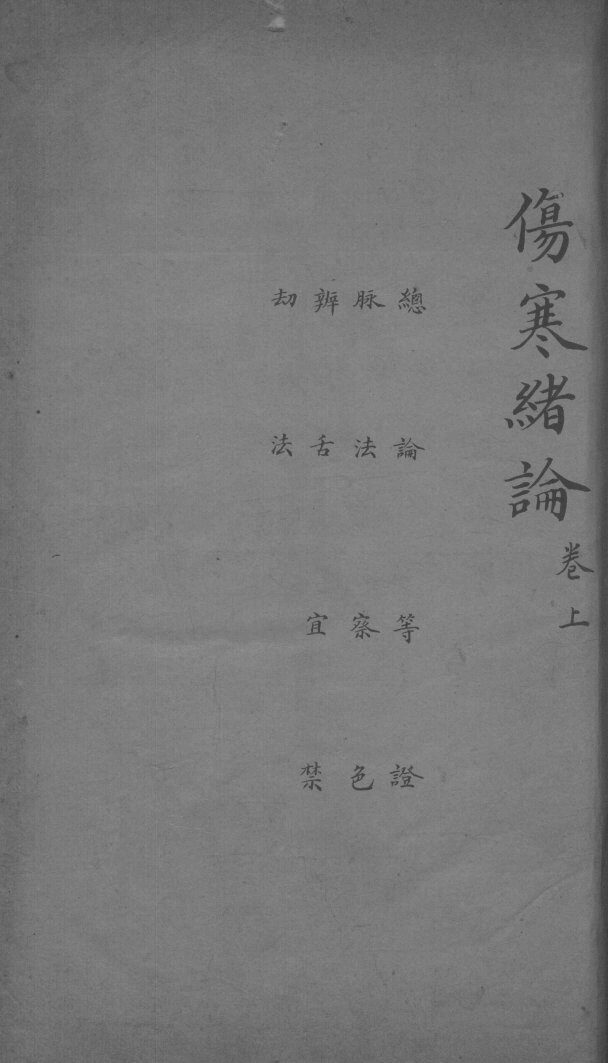 傷寒緒論卷上
總論等證
脉法察色
辨舌宜禁
刼法